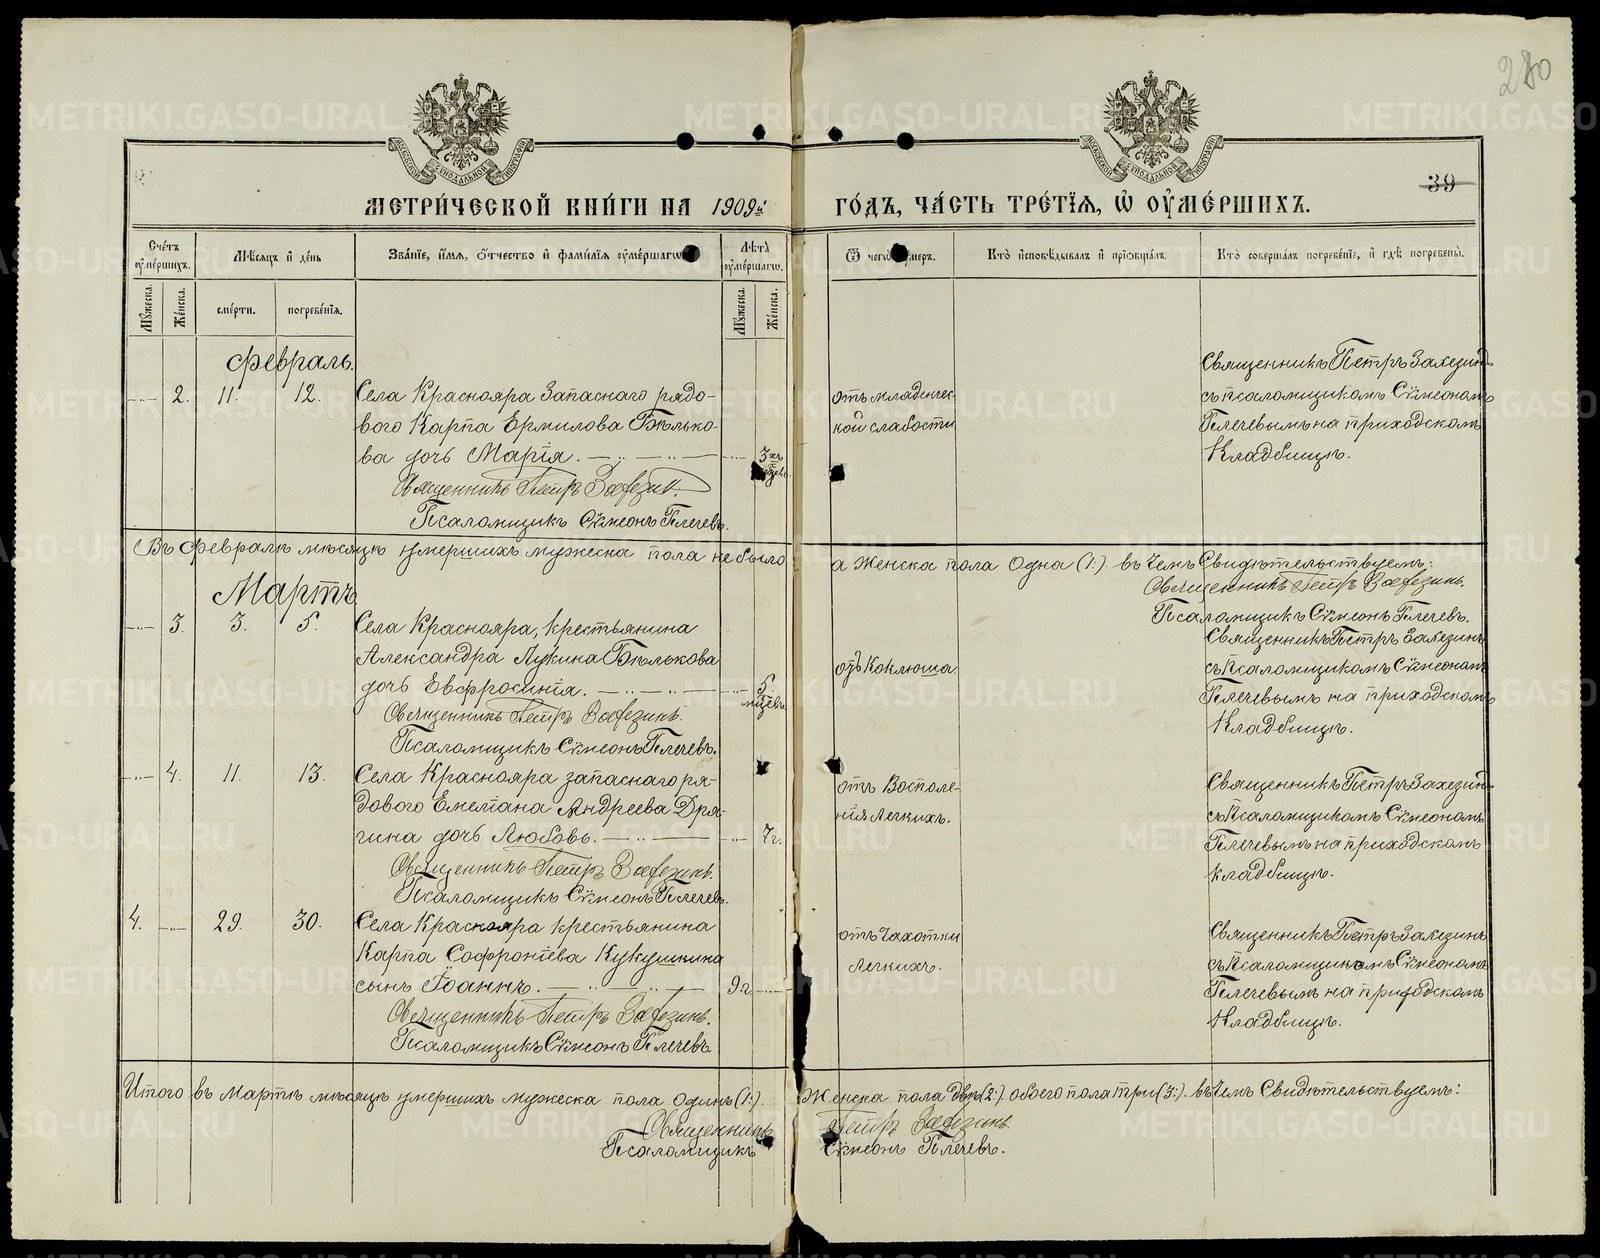 280
39
МЕТРИ́ЧЕСКОЙ КНИ́ГИ НА 1909й
ГО́ДЪ, ЧА́СТЬ ТРЕ́ТІЯ, Ѽ ОУМЕ́РШИХЪ.
Сче́тъ оуме́ршихъ.
Мѣсяцъ и день
Зва́ніе, и́мя, о́тчество и фами́лія оуме́ршагѡ
Лѣта̀ оуме́ршагѡ.
Ѿ чегѡ̀ оумеръ.
Кто̀ исповѣдывалъ и пріѡбща́лъ.
Кто̀ соверша́лъ погребе́ніе, и гдѣ погребены̀.
Му́жеска.
Же́нска.
сме́рти.
погребе́нія.
Му́жеска.
Же́нска.
Февраль.
2.
11.
12.
Села Краснояра Запаснаго рядо-
вого Карпа Ермилова Бѣлько-
ва дочь Марія.
3хъ
Священникъ Петръ Захезин.
Псаломщикъ Сѵмеонъ Плечевъ.
отъ младенчес-
кой слабости
Священникъ Петръ Захезинъ
съ Псаломщикомъ Сѵмеономъ
Плечевымъ на приходскомъ
Кладбищѣ.
Въ Февралѣ мѣсяцѣ умершихъ мужеска пола не было
а Женска пола Одна (1:). въ чемъ Свидѣтельствуемъ:
Священникъ Петръ Захезинъ.
Псаломщикъ Сѵмеонъ Плечевъ.
Мартъ.
3.
3.
5.
Села Краснояра, крестьянина
Александра Лукина Бѣлькова
дочь Евфросинія.
5
мѣсцевъ
Священникъ Петръ Захезинъ.
Псаломщикъ Сѵмеонъ Плечевъ.
отъ Коклюша.
Священникъ Петръ Захезинъ
съ Псаломщикомъ Сѵмеономъ
Плечевымъ на приходскомъ
Кладбищѣ.
4.
11.
13.
Села Краснояра запаснаго ря-
дового Емеліана Андреева Дря-
гина дочь Любовь.
7г.
Священникъ Петръ Захезинъ.
Псаломщикъ Сѵмеонъ Плечевъ.
отъ Восполе-
нія легкихъ.
Священникъ Петръ Захезинъ
съ Псаломщикомъ Сѵмеономъ
Плечевымъ на приходскомъ
кладбищѣ.
4.
29.
30.
Села Краснояра крестьянина
Карпа Софронтіева Кукушкина
сынъ Іоаннъ.
9г.
Священникъ Петръ Захезинъ.
Псаломщикъ Сѵмеонъ Плечевъ.
отъ Чахотки
Легкихъ.
Священникъ Петръ Захезинъ
съ Псаломщикомъ Сѵмеономъ
Плечевымъ на приходскомъ
Кладбищѣ.
Итого въ Мартѣ мѣсяцѣ умершихъ мужеска пола одинъ (1:).
Женска пола двѣ (2:). обоего пола три (3:). въ чемъ Свидѣтельствуемъ:
Священникъ Петръ Захезинъ.
Псаломщикъ Сѵмеонъ Плечевъ.
METRIKI.GASO-URAL.RU